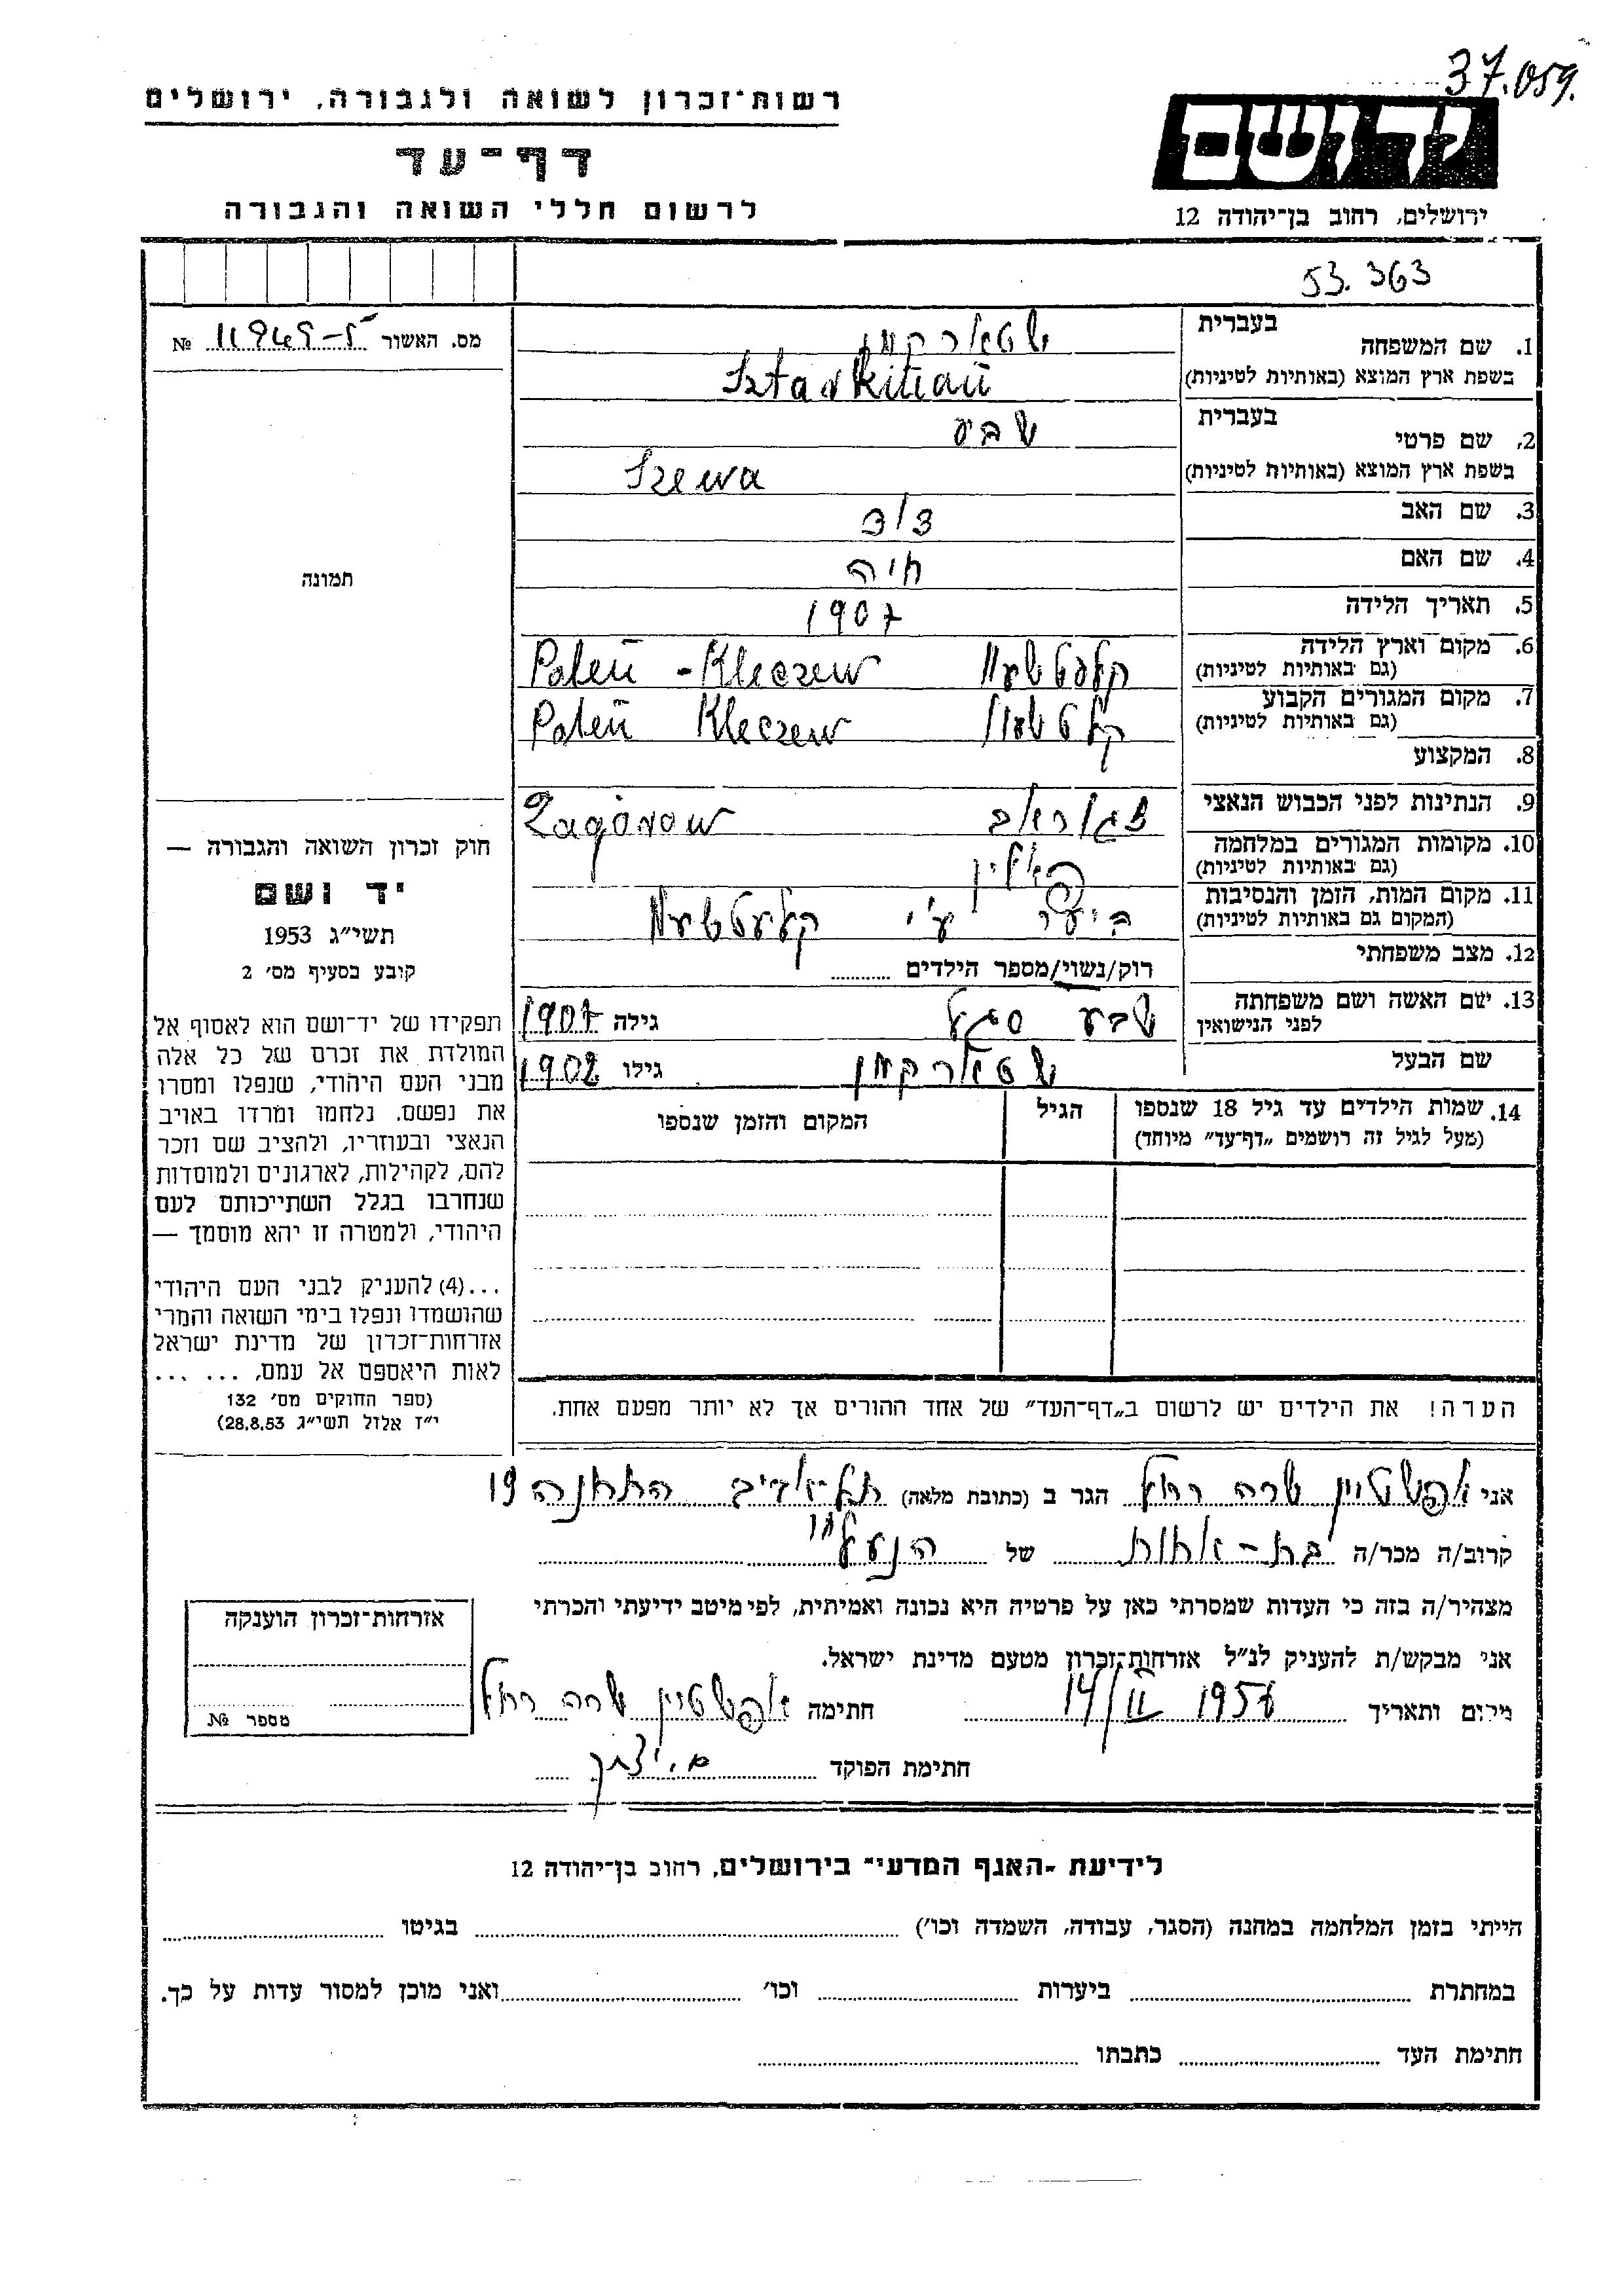 37.059.
רשות־זכרון לשואה ולגבורה, ירושלים
יד ושם
דף־עד
לרשום חללי השואה והגבורה
ירושלים, רחוב בן־יהודה 12
53.363
מס. האשור № 11949-5
1. שם המשפחה בעברית שטארקמן
בשפת ארץ המוצא (באותיות לטיניות)
2. שם פרטי בעברית שבע
בשפת ארץ המוצא (באותיות לטיניות) Szewa
3. שם האב דוד
4. שם האם חיה
5. תאריך הלידה 1907
6. מקום וארץ הלידה (גם באותיות לטיניות) קלעטשעוו Kleczew - Polen
7. מקום המגורים הקבוע (גם באותיות לטיניות) Kleczew Polen
8. המקצוע
9. הנתינות לפני הכבוש הנאצי
Zagórow
10. מקומות המגורים במלחמה (גם באותיות לטיניות) פולין
11. מקום המות, הזמן והנסיבות (המקום גם באותיות לטיניות) ביער ע"י קלעטשעוו
12. מצב משפחתי רוק/נשוי/מספר הילדים
13. שם האשה ושם משפחתה לפני הנישואין שבע סגל גילה 1907
שם הבעל שטארקמן גילו 1902
14. שמות הילדים עד גיל 18 שנספו (מעל לגיל זה רושמים „דף־עד” מיוחד) הגיל המקום והזמן שנספו
הערה! את הילדים יש לרשום ב„דף־העד” של אחד ההורים אך לא יותר מפעם אחת.
תמונה
חוק זכרון השואה והגבורה —
יד ושם
תשי״ג 1953
קובע בסעיף מס׳ 2
תפקידו של יד־ושם הוא לאסוף אל
המולדת את זכרם של כל אלה
מבני העם היהודי, שנפלו ומסרו
את נפשם. נלחמו ומרדו באויב
הנאצי ובעוזריו, ולהציב שם וזכר
להם, לקהילות, לארגונים ולמוסדות
שנחרבו בגלל השתייכותם לעם
היהודי, ולמטרה זו יהא מוסמך —
...(4) להעניק לבני העם היהודי
שהושמדו ונפלו בימי השואה והמרי
אזרחות־זכרון של מדינת ישראל
לאות היאספם אל עמם, ... ...
(ספר החוקים מס׳ 132
י״ז אלול תשי״ג 28.8.53)
אני אפשטיין שרה רחל הגר ב (כתובת מלאה) תל־אביב התחנה 19
קרוב/ה מכר/ה בת-אחות של הנ"ל
מצהיר/ה בזה כי העדות שמסרתי כאן על פרטיה היא נכונה ואמיתית, לפי מיטב ידיעתי והכרתי
אני מבקש/ת להעניק לנ״ל אזרחות־זכרון מטעם מדינת ישראל.
מקום ותאריך 14/II 1956 חתימה אפשטיין שרה רחל
חתימת הפוקד
אזרחות־זכרון הוענקה
מספר №
לידיעת „האגף המדעי” בירושלים, רחוב בן־יהודה 12
הייתי בזמן המלחמה במחנה (הסגר, עבודה, השמדה וכו׳) בגיטו
במחתרת ביערות וכו׳ ואני מוכן למסור עדות על כך.
חתימת העד כתבתו